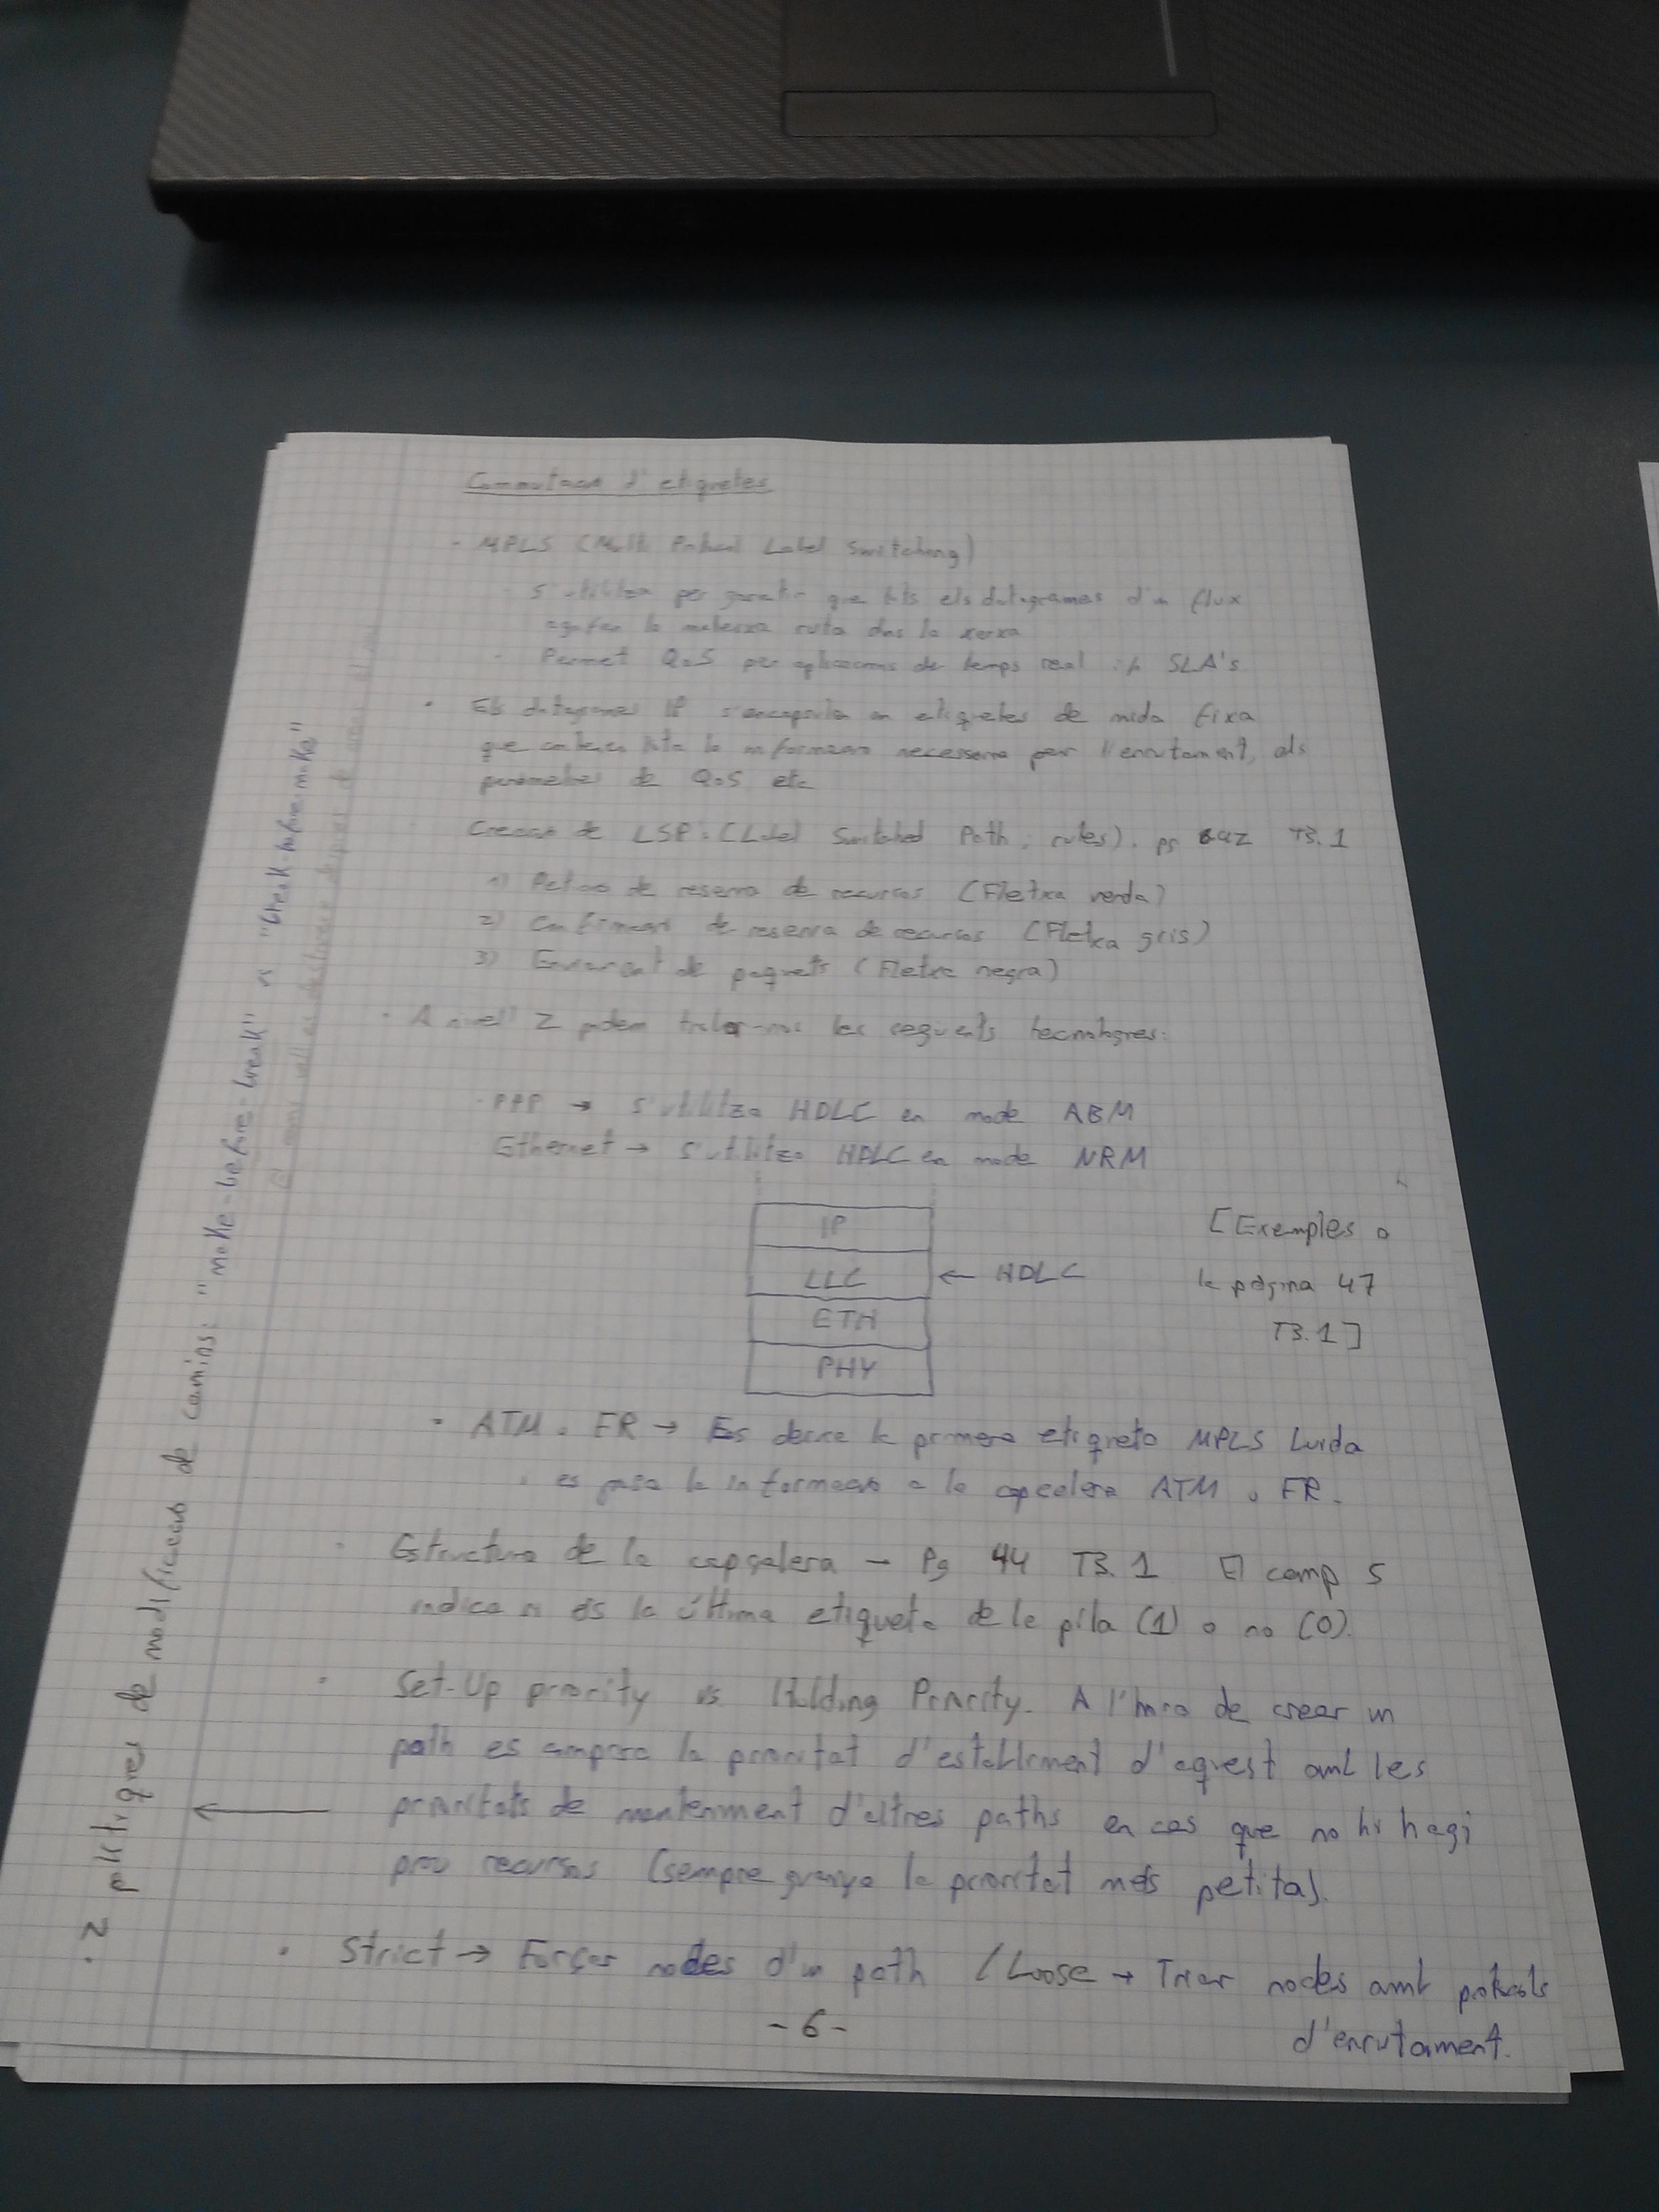 Commutació d'etiquetes
- MPLS (Multi Protocol Label Switching)
- S'utilitza per garantir que tots els datagrames d'un flux
agafen la mateixa ruta dins la xarxa
- Permet QoS per aplicacions de temps real i/o SLA's
· Els datagrames IP s'encapsulen en etiquetes de mida fixa
que contenen tota la informació necessaria per l'enrutament, als
parametres de QoS, etc
· Creació de LSP: (Label Switched Path, rutes). pg 42 T3.1
1) Petició de reserva de recursos (Fletxa verda)
2) Confirmació de reserva de recursos (Fletxa gris)
3) Enviament de paquets (Fletxa negra)
· A nivell 2 podem trobar-nos les següents tecnologies:
· PPP → S'utilitza HDLC en mode ABM
Ethernet → S'utilitza HDLC en mode NRM
IP
LLC ← HDLC
ETH
PHY
[Exemples a
la pàgina 47
T3.1]
· ATM o FR → Es deixa la primera etiqueta MPLS buida
i es passa la informació a la capcelera ATM o FR.
· Estructura de la capçalera → Pg 44 T3.1 El camp S
indica si és la última etiqueta de la pila (1) o no (0).
· Set-Up priority vs Holding Priority. A l'hora de crear un
path es compara la prioritat d'establiment d'aquest amb les
prioritats de manteniment d'altres paths en cas que no hi hagi
prou recursos (sempre guanya la prioritat més petita).
· Strict → Forçar nodes d'un path / Loose → Triar nodes amb protocols
d'enrutament.
- 6 -
· 2 polítiques de modificació de camins: "make-before-break" vs "break-before-make"